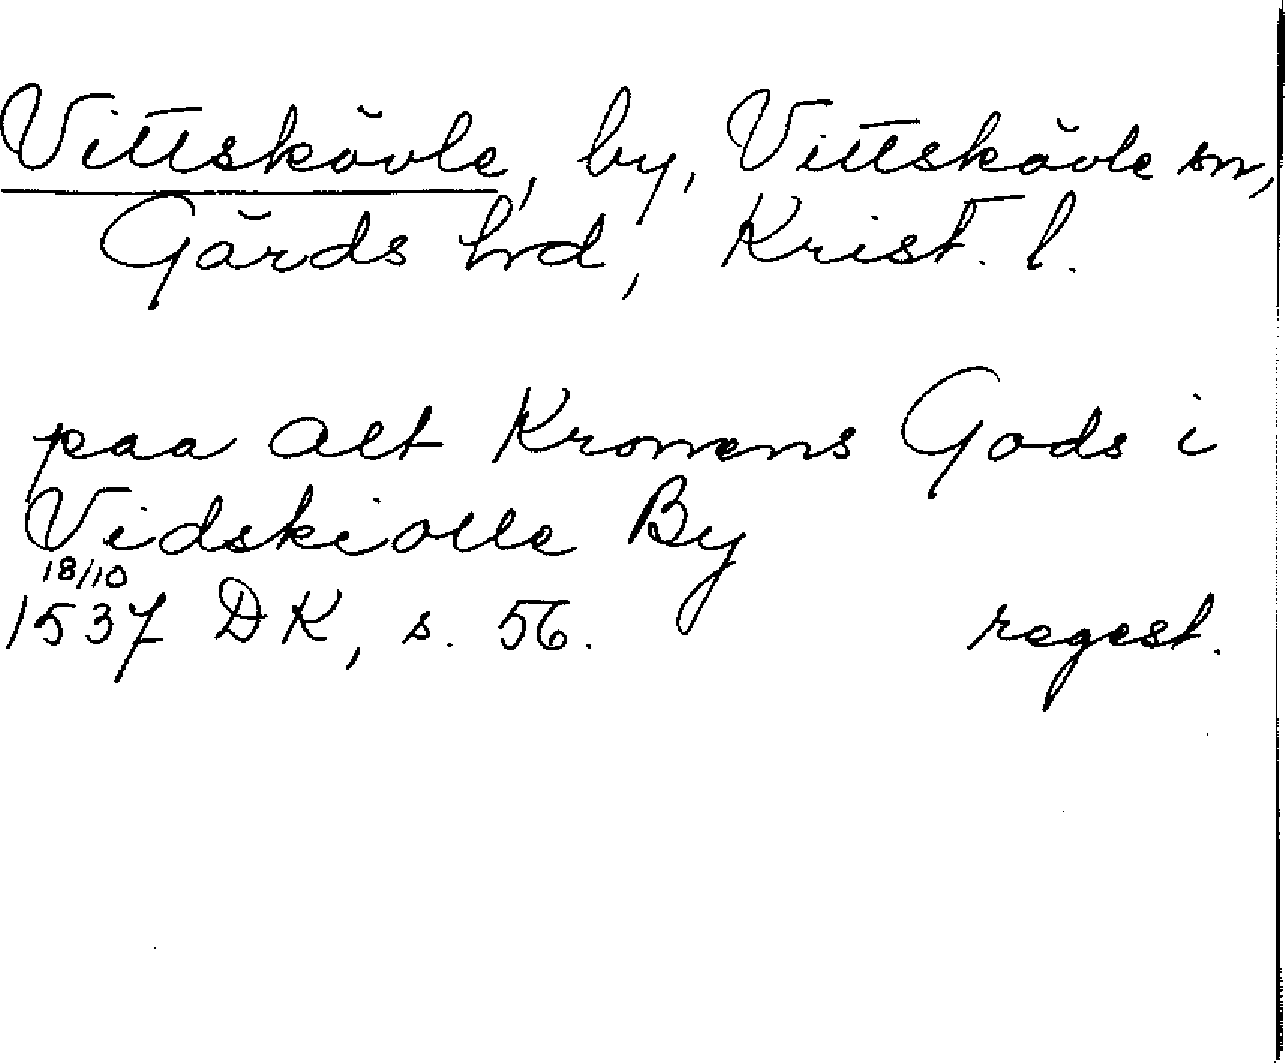 Vittskövle, by, Vittskövle sn,
Gärds hrd, Krist. l.
paa alt Kronens Gods i
Vidskiolle By
18/10
1537 DK, s. 56. regest.